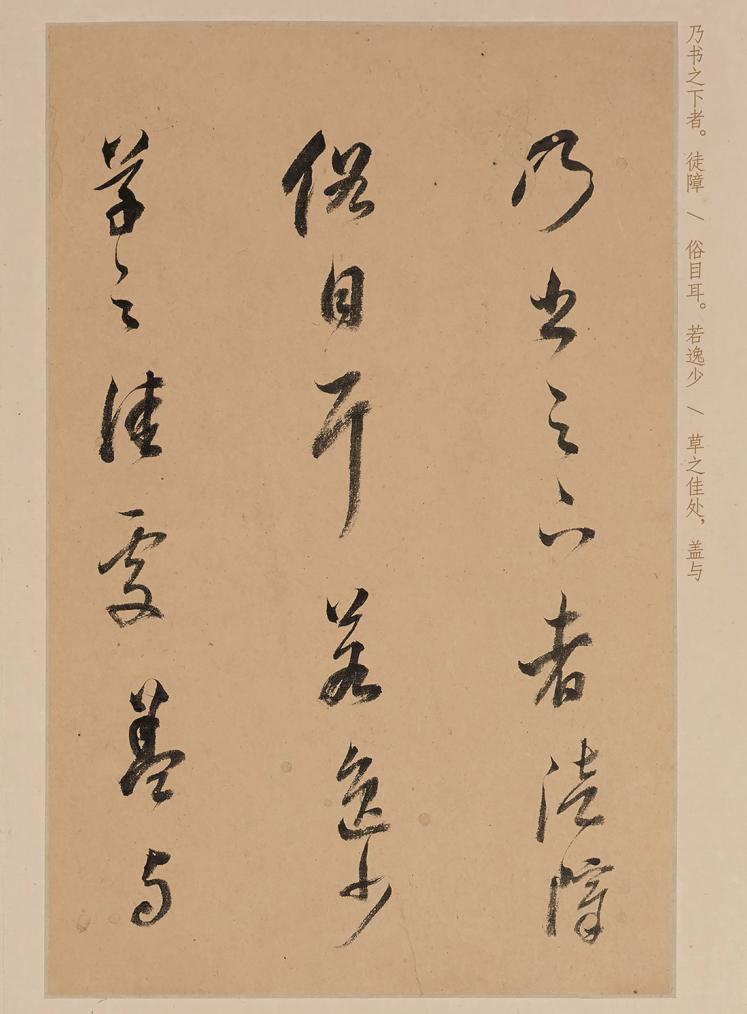 乃书之下者。徒障 \ 俗目耳。若逸少 \ 草之佳处，盖与
乃书之下者徒障
俗目耳若逸少
草之佳處蓋与